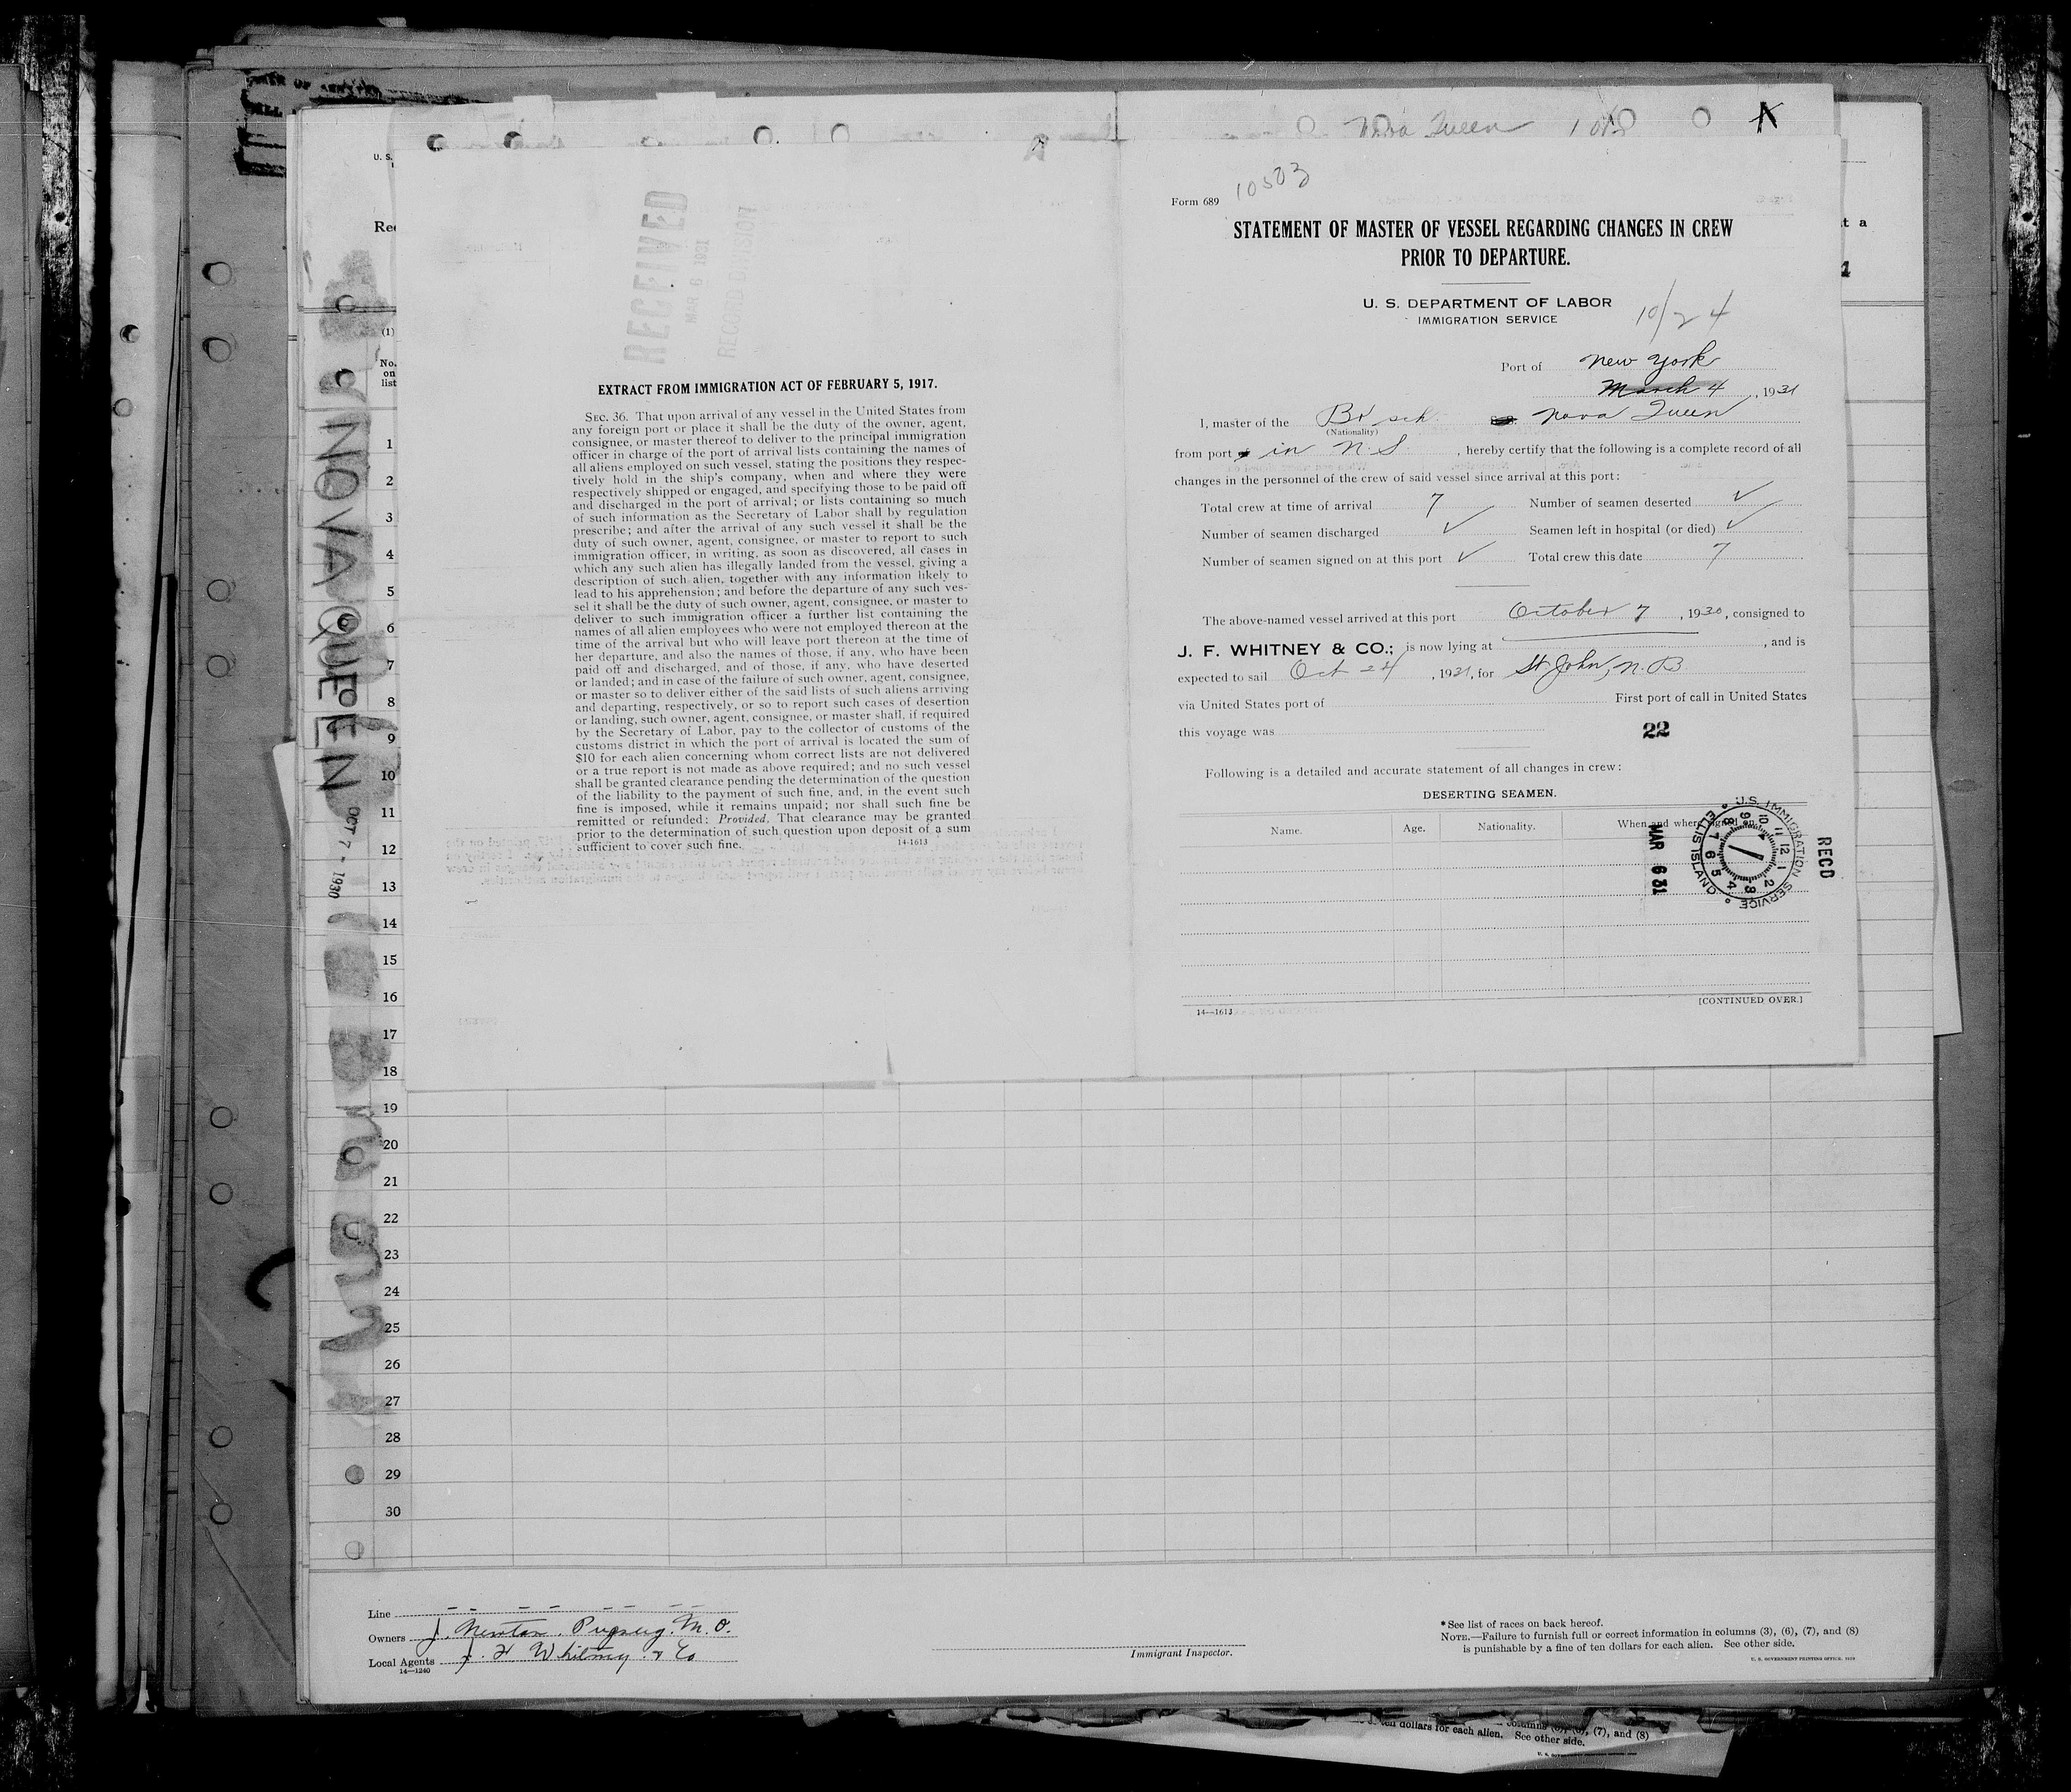 Nova Queen
U. S.
Rec
(1)
No.
on
list
NOVA QUEEN OCT 7 - 1930
1
2
3
4
5
6
7
8
9
10
11
12
13
14
15
16
17
18
19
20
21
22
23
24
25
26
27
28
29
30
RECEIVED
MAR 6 1931
RECORD DIVISION
EXTRACT FROM IMMIGRATION ACT OF FEBRUARY 5, 1917.
SEC. 36. That upon arrival of any vessel in the United States from
any foreign port or place it shall be the duty of the owner, agent,
consignee, or master thereof to deliver to the principal immigration
officer in charge of the port of arrival lists containing the names of
all aliens employed on such vessel, stating the positions they respec-
tively hold in the ship's company, when and where they were
respectively shipped or engaged, and specifying those to be paid off
and discharged in the port of arrival; or lists containing so much
of such information as the Secretary of Labor shall by regulation
prescribe; and after the arrival of any such vessel it shall be the
duty of such owner, agent, consignee, or master to report to such
immigration officer, in writing, as soon as discovered, all cases in
which any such alien has illegally landed from the vessel, giving a
description of such alien, together with any information likely to
lead to his apprehension; and before the departure of any such ves-
sel it shall be the duty of such owner, agent, consignee, or master to
deliver to such immigration officer a further list containing the
names of all alien employees who were not employed thereon at the
time of the arrival but who will leave port thereon at the time of
her departure, and also the names of those, if any, who have been
paid off and discharged, and of those, if any, who have deserted
or landed; and in case of the failure of such owner, agent, consignee,
or master so to deliver either of the said lists of such aliens arriving
and departing, respectively, or so to report such cases of desertion
or landing, such owner, agent, consignee, or master shall, if required
by the Secretary of Labor, pay to the collector of customs of the
customs district in which the port of arrival is located the sum of
$10 for each alien concerning whom correct lists are not delivered
or a true report is not made as above required; and no such vessel
shall be granted clearance pending the determination of the question
of the liability to the payment of such fine, and, in the event such
fine is imposed, while it remains unpaid; nor shall such fine be
remitted or refunded: Provided, That clearance may be granted
prior to the determination of such question upon deposit of a sum
sufficient to cover such fine.
14-1613
10503
Form 689
STATEMENT OF MASTER OF VESSEL REGARDING CHANGES IN CREW
PRIOR TO DEPARTURE.
U. S. DEPARTMENT OF LABOR
IMMIGRATION SERVICE
10/24
Port of New York
March 4, 1931
I, master of the Br sch. Nova Queen
(Nationality)
from port in N.S., hereby certify that the following is a complete record of all
changes in the personnel of the crew of said vessel since arrival at this port:
Total crew at time of arrival 7 Number of seamen deserted ✓
Number of seamen discharged ✓ Seamen left in hospital (or died) ✓
Number of seamen signed on at this port ✓ Total crew this date 7
The above-named vessel arrived at this port October 7, 1930, consigned to
J. F. WHITNEY & CO.; is now lying at , and is
expected to sail Oct 24, 1931, for St John, N.B
via United States port of First port of call in United States
this voyage was
22
Following is a detailed and accurate statement of all changes in crew:
DESERTING SEAMEN.
Name. Age. Nationality. When and where signed on.
MAR 6 31
U.S. IMMIGRATION SERVICE
ELLIS ISLAND
REC'D
[CONTINUED OVER.]
14—1613
t a
Line
Owners J. Newton Pugsley M.O.
Local Agents J. F. Whitney & Co
14—1240
Immigrant Inspector.
*See list of races on back hereof.
NOTE.—Failure to furnish full or correct information in columns (3), (6), (7), and (8)
is punishable by a fine of ten dollars for each alien. See other side.
U. S. GOVERNMENT PRINTING OFFICE
columns (6), (7), and (8)
ten dollars for each alien. See other side.